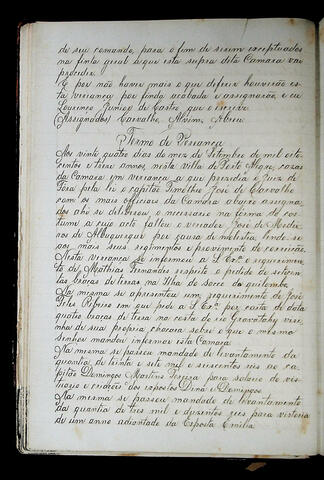 de seu comando, para o fim de serem exceptuados
na finta geral á que esta supra dita Camara vai
proceder.
E por não haver mais o que deferir houverão es-
ta vereança por finda acabada e assignarão, e eu
Lourenço Junior de Castro que o escrevi
(Assignados) Carvalho, Alvim, Abreu
Termo de Vereança
Aos vinte quatro dias do mez de Setembro de mil oito-
centos e treze annos, nesta villa de Porto Alegre, cazas
da Camara em vereança, a que presedio o Juiz de
Fora pela lei o capitão Timotheo José de Carvalho
com os mais officiaes da Camara abaixo assigna-
dos ahi se deliberou o necessario na forma do cos-
tume a cujo acto faltou o vereador José de Medei-
ros de Albuquerque por cauza de molestia, tendo-se
por mais seus regimentos e provimento de correição.
Nesta vereança se informou a S. Exª o requerimen-
to de Mathias Fernandes respeito o pedido de setecen-
tas braças de terras na Ilha do Sacco da quilomba.
Na mesma se apresentou um requerimento de José
Telis Ribeiro em que pede a S. Exª por carta de data
quatro braças de terra na costa do rio Gravatahy vizi-
nha de sua propria chacara sobre o que o mesmo
Senhor mandou informar esta Camara.
Na mesma se passou mandado de levantamento da
quantia de trinta e sete mil e seiscentos reis ao ca-
pitão Domingos Martins Pereira para salario de ves-
tuario e creações dos expostos Dina e Domingos.
Na mesma se passou mandado de levantamento
da quantia de tres mil e duzentos reis para vestoria
de um anno adiantado da Exposta Emilia